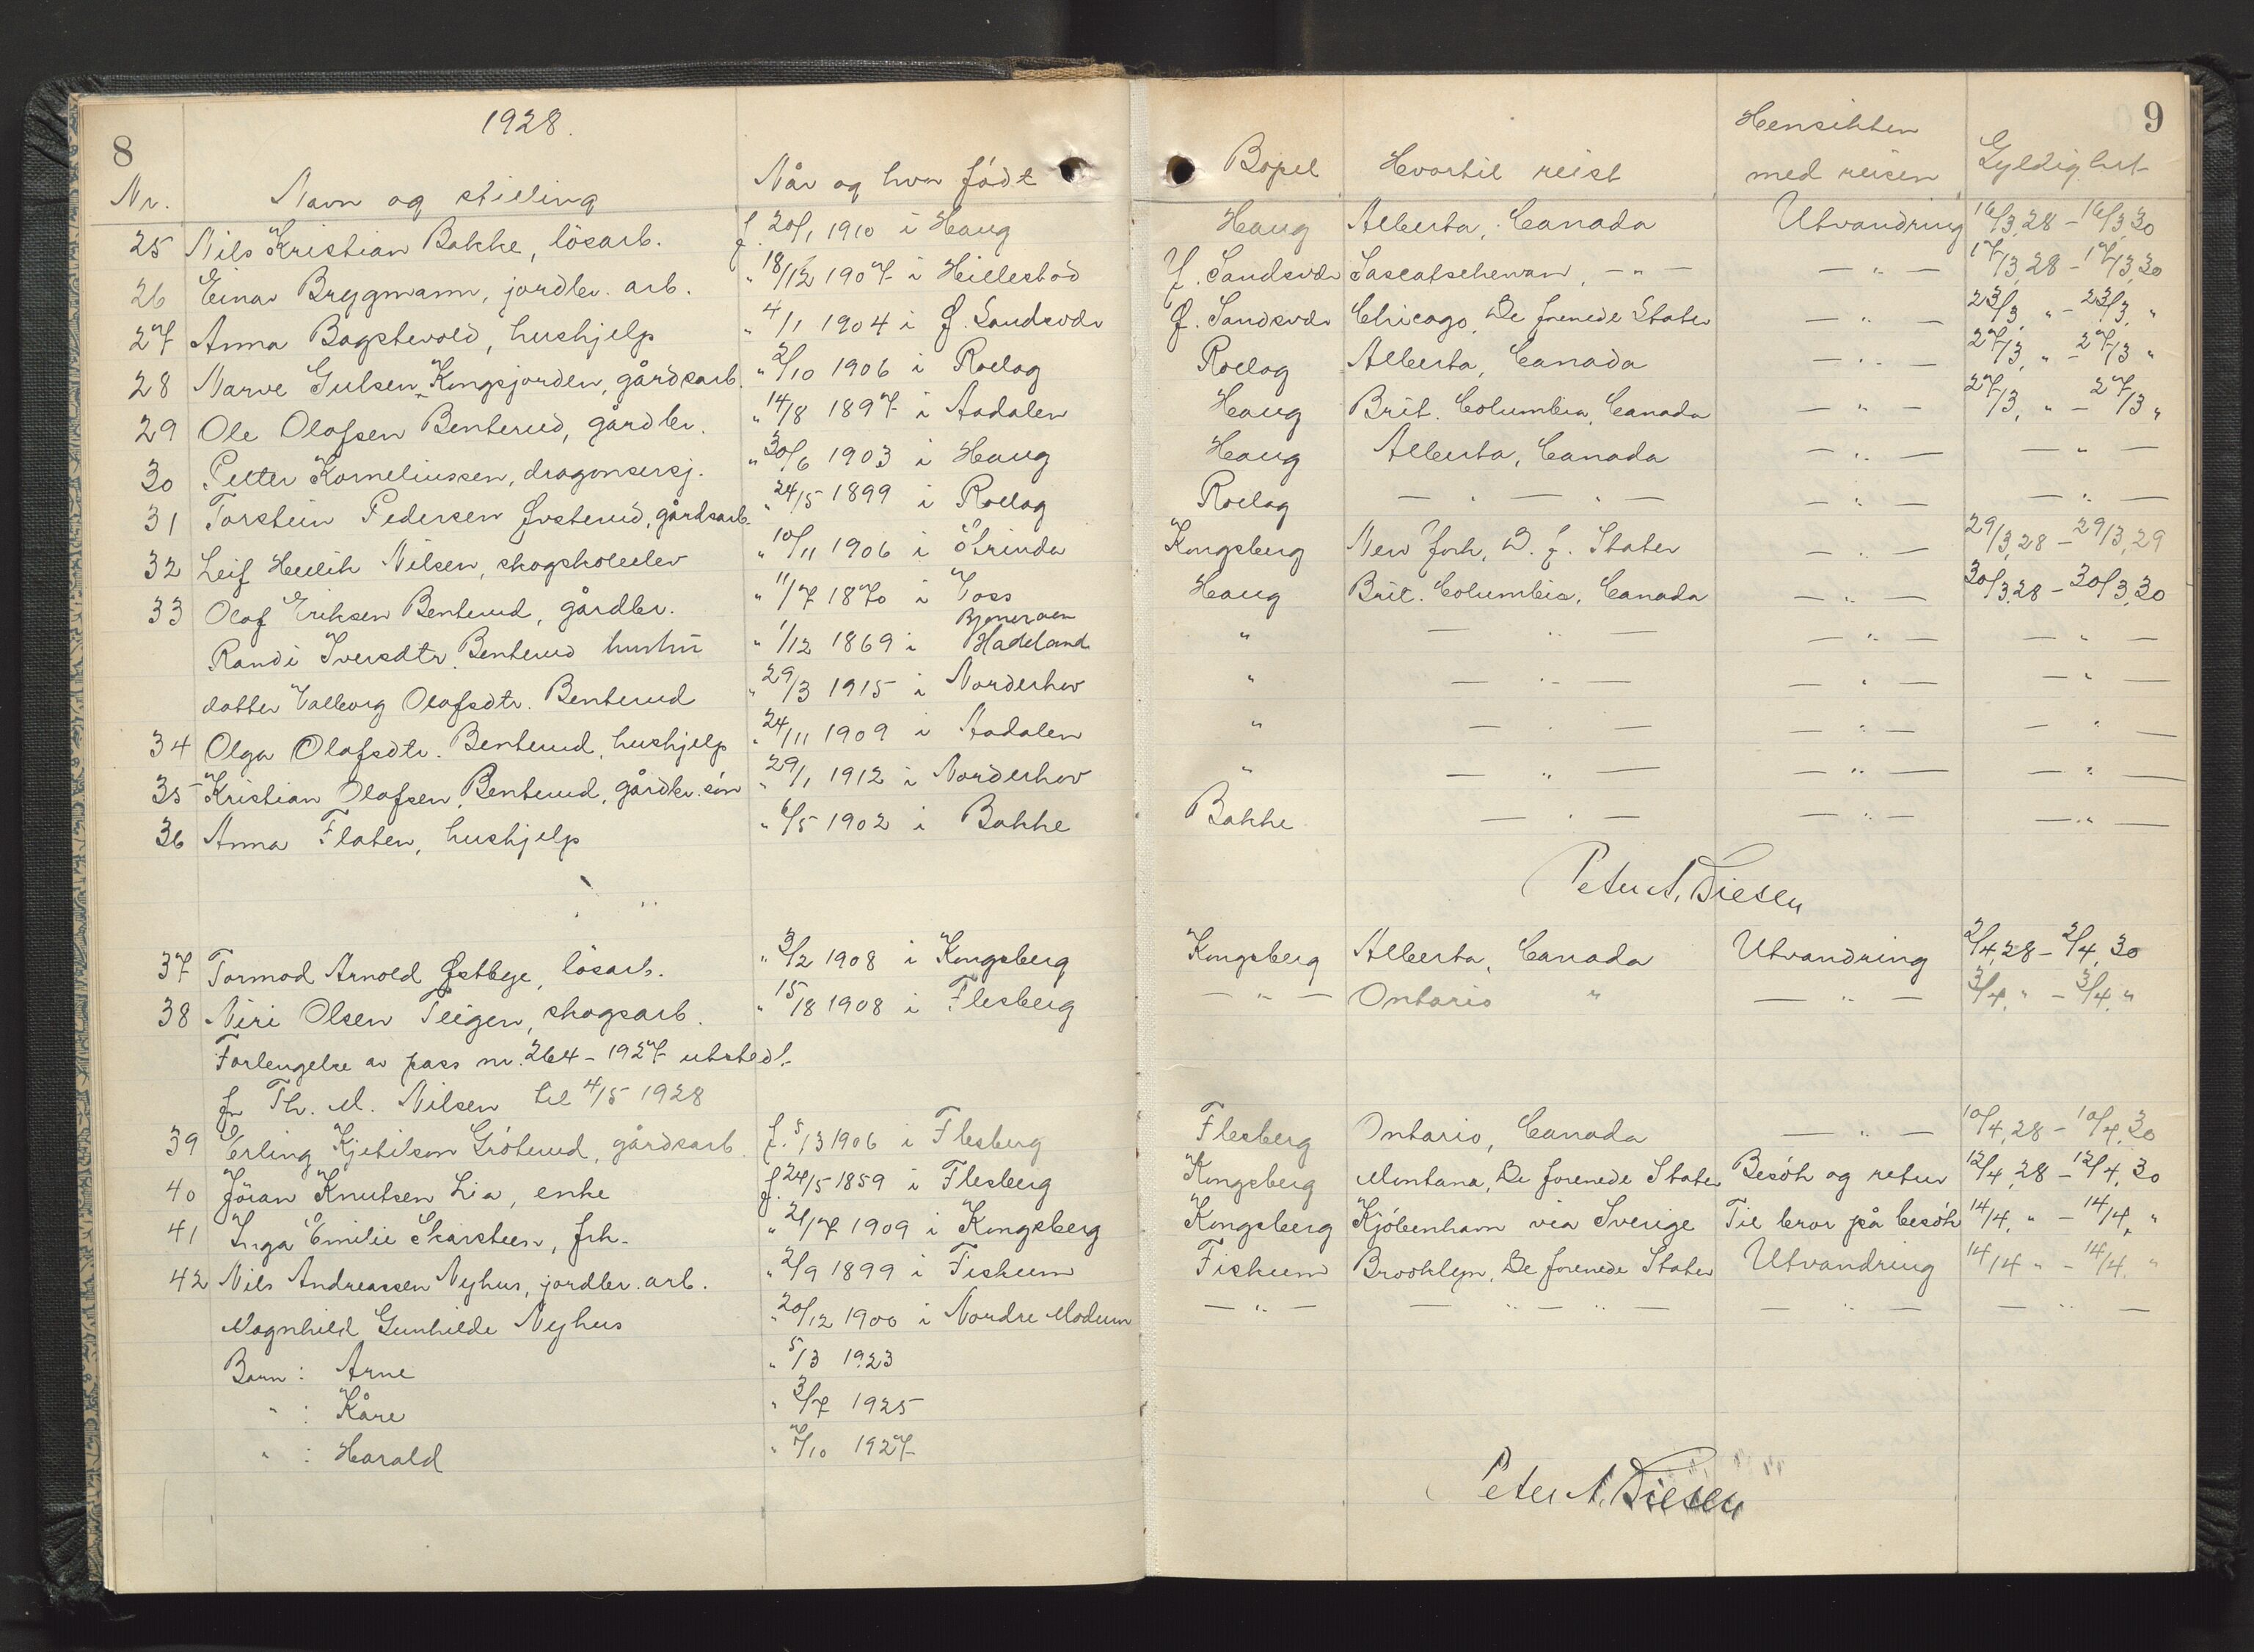 8
1928.
9
Nr. Navn og stilling Når og hvor födt Bopel Hvortil reist Hensikten med reisen Gyldighet
25 Nils Kristian Bakke, lösarb. f. 20/1 1910 i Haug Haug Alberta, Canada Utvandring 16/3 28 - 16/3 30
26 Einar Brygmann, jordbr. arb. " 18/12 1907 i Hillestad Y. Sandsvær Sascatschewan, - " - - " - 17/3 28 - 17/3 30
27 Anna Bagstevold, hushjelp " 4/1 1904 i Ø. Sandsvær Ø. Sandsvær Chicago, De forenede Stater - " - 23/3 " - 23/3 "
28 Narve Gulsen Kongsjorden, gårdsarb. " 2/10 1906 i Rollag Rollag Alberta, Canada - " - 27/3 " - 27/3 "
29 Ole Olafsen Benterud, gårdbr. " 14/8 1897 i Aadalen Haug Brit. Columbia, Canada - " - 27/3 " - 27/3 "
30 Petter Korneliussen, dragonsersj. " 30/6 1903 i Haug Haug Alberta, Canada - " - - " -
31 Torstein Pedersen Øvsterud, gårdsarb. " 24/5 1899 i Rollag Rollag - " - " - - " - - " -
32 Leif Heilik Nilsen, skogskoleelev " 10/11 1906 i Strinda Kongsberg New York, D. f. Stater - " - 29/3 28 - 29/3 29
33 Olaf Eriksen Benterud, gårdbr. " 11/7 1870 i Voss Haug Brit. Columbia, Canada - " - 30/3 28 - 30/3 30
Randi Iversdtr. Benterud hustru " 1/12 1869 i Bjoneroen Hadeland " - " - - " - - " -
datter Valborg Olafsdtr. Benterud " 29/3 1915 i Norderhov " - " - - " - - " -
34 Olga Olafsdtr. Benterud, hushjelp " 24/11 1909 i Aadalen " - " - - " - - " -
35 Kristian Olafsen Benterud, gårdbr. sön " 29/1 1912 i Norderhov " - " - - " - - " -
36 Anna Flaten, hushjelp " 6/5 1902 i Bakke Bakke - " - - " - - " -
Peter A. Diesen
37 Tormod Arnold Østbye, lösarb. " 3/2 1908 i Kongsberg Kongsberg Alberta, Canada Utvandring 2/4 28 - 2/4 30
38 Niri Olsen Teigen, skogsarb. " 15/8 1908 i Flesberg - " - Ontario " - " - 3/4 " - 3/4 "
Forlengelse av pass nr. 264 - 1927 utstedt
fr Th. M. Nilsen til 4/5 1928
39 Erling Kjetilson Gröterud, gårdsarb. f. 5/3 1906 i Flesberg Flesberg Ontario, Canada - " - 10/4 28 - 10/4 30
40 Jöran Knutsen Lia, enke f. 24/5 1859 i Flesberg Kongsberg Montana, De forenede Stater Besök og retur 12/4 28 - 12/4 30
41 Inga Emilie Skarsteen, frk. " 21/7 1909 i Kongsberg Kongsberg Kjöbenhavn via Sverige Til bror på besök 14/4 " - 14/4 "
42 Nils Andreassen Nyhus, jordbr. arb. " 2/9 1899 i Fiskum Fiskum Brooklyn, De forenede Stater Utvandring 14/4 " - 14/4 "
Magnhild Gunhilde Nyhus " 20/12 1900 i Nordre Modum - " - - " - " - - " - - " -
Barn : Arne " 5/3 1923
" : Kåre " 3/7 1925
" : Harald " 7/10 1927
Peter A. Diesen